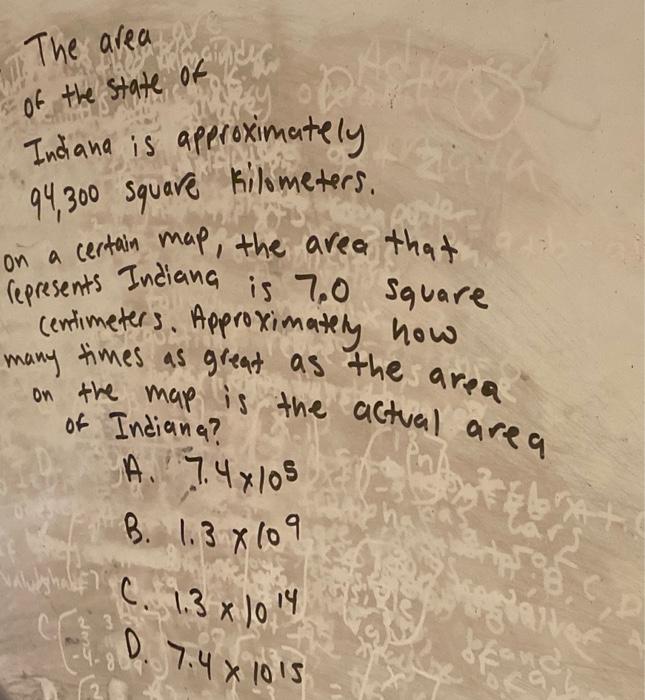 The area
of the state of
Indiana is approximately
94,300 square kilometers.
on a certain map, the area that
represents Indiana is 7.0 square
centimeters. Approximately how
many times as great as the area
on the map is the actual area
of Indiana?
A. 7.4 x 10⁵
B. 1.3 x 10⁹
C. 1.3 x 10¹⁴
D. 7.4 x 10¹⁵